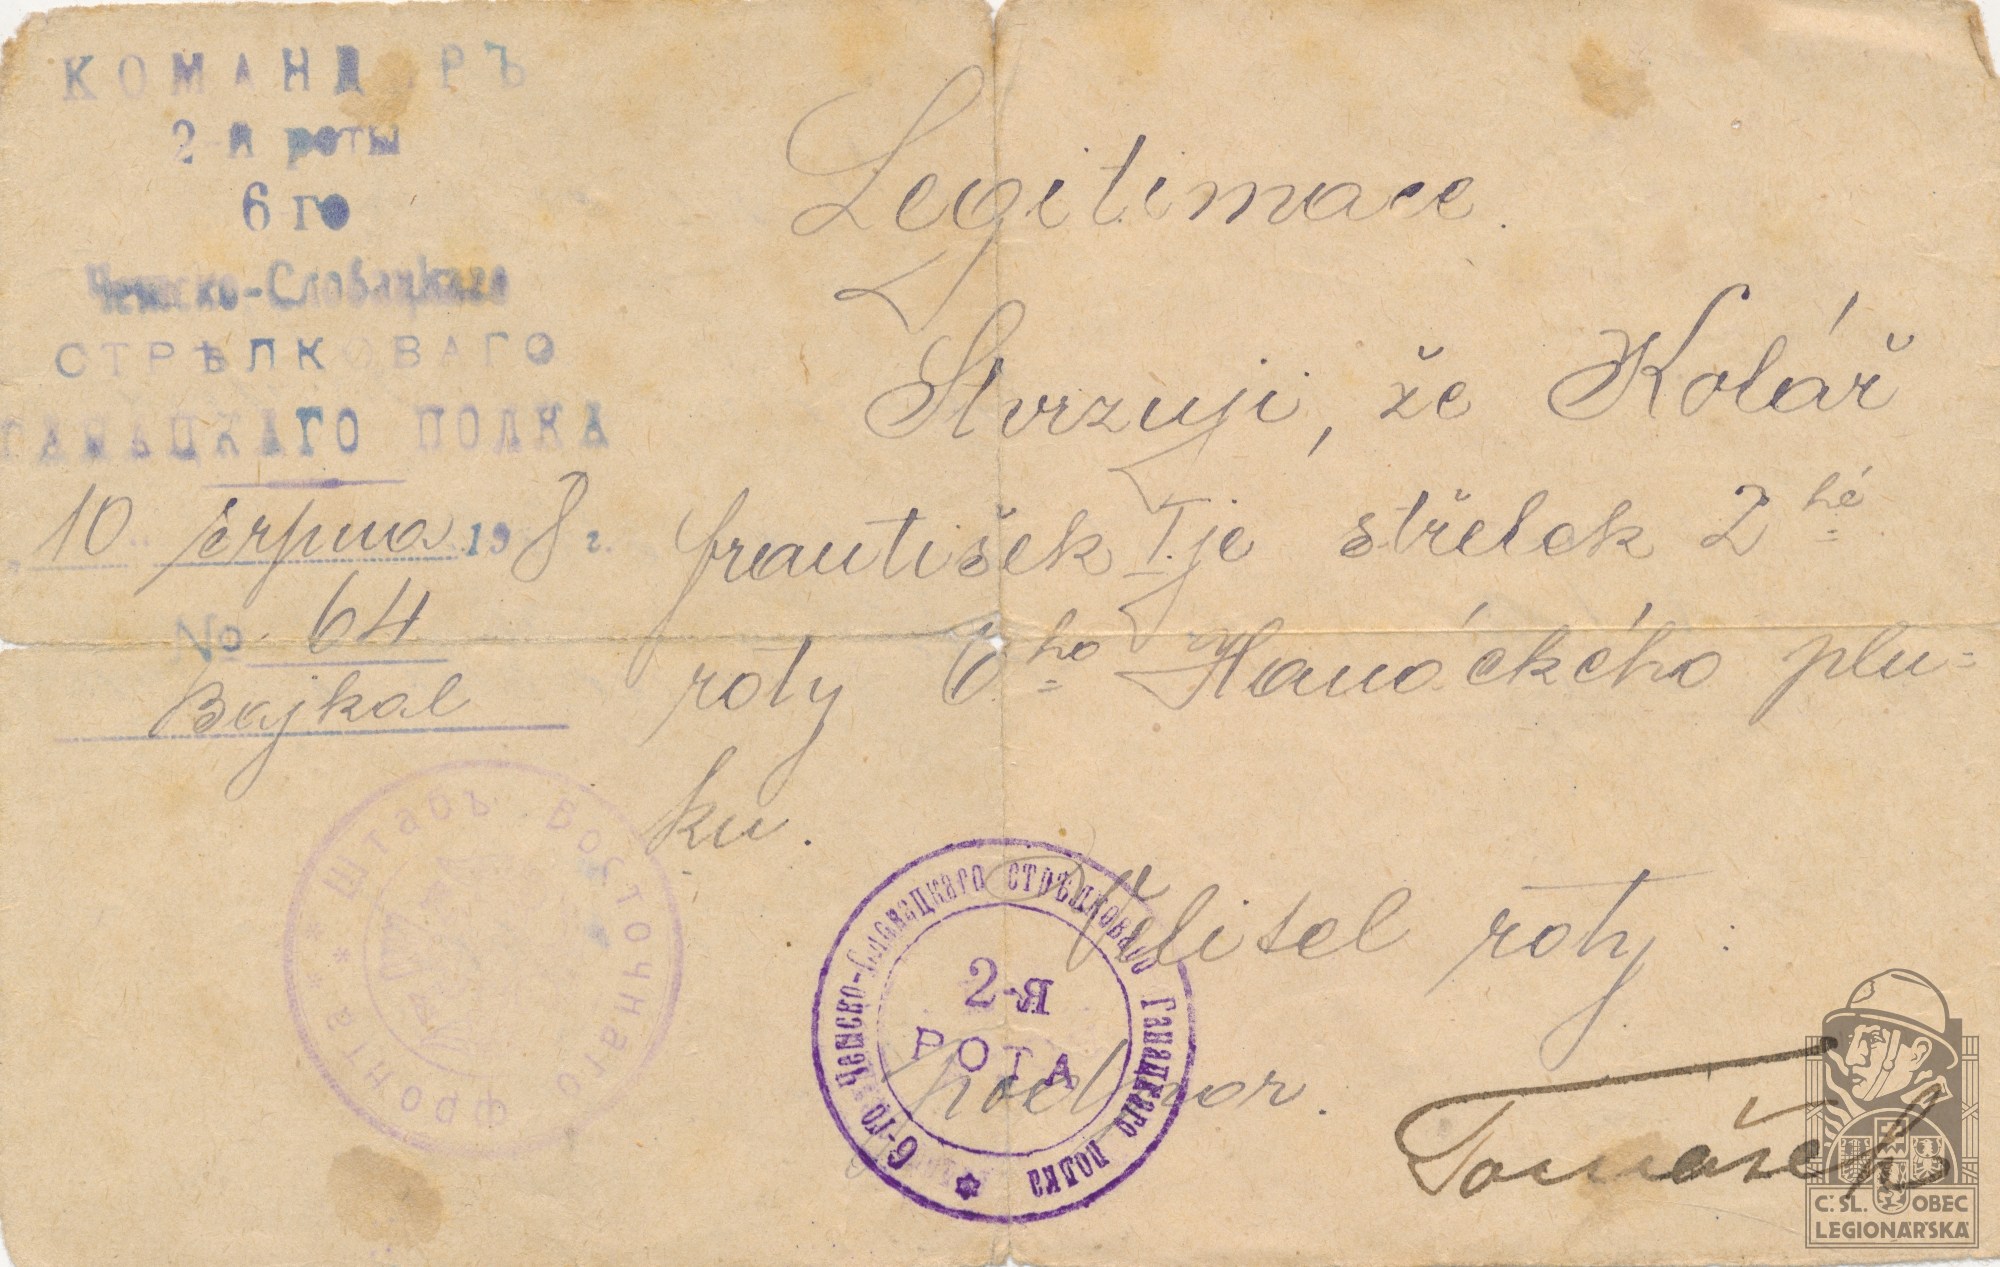 КОМАНД РЪ
2-й роты
6 го
Чешско-Словацкаго
СТРѢЛКОВАГО
ГАНАЦКАГО ПОЛКА
10 srpna 1918 г.
No 64
Bajkal
Legitimace.
Stvrzuji, že Kolář
František I. je střelek 2hé
roty 6ho Hanáckého plu=
ku.
Velitel roty:
Tomášek
* Штабъ Восточнаго фронта *
6-го Чешско-Словацкаго стрѣлковаго Ганацкаго полка
2-я
РОТА
Č. SL. OBEC
LEGIONÁŘSKÁ